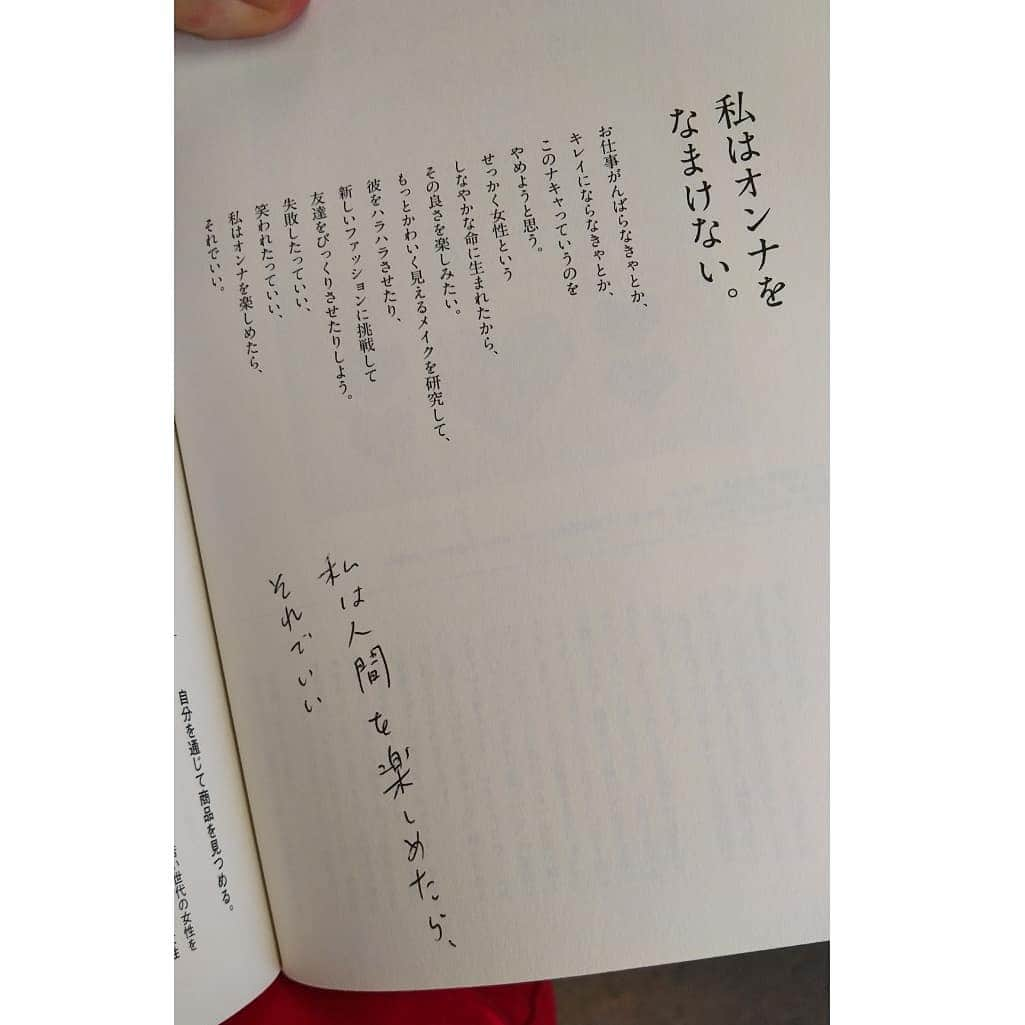 私はオンナを
なまけない。
お仕事がんばらなきゃとか、
キレイにならなきゃとか、
このナキャっていうのを
やめようと思う。
せっかく女性という
しなやかな命に生まれたから、
その良さを楽しみたい。
もっとかわいく見えるメイクを研究して、
彼をハラハラさせたり、
新しいファッションに挑戦して
友達をびっくりさせたりしよう。
失敗したっていい、
笑われたっていい、
私はオンナを楽しめたら、
それでいい。
私は人間を楽しめたら、
それでいい
自分を通じて商品を見つめる。
い世代の女性を